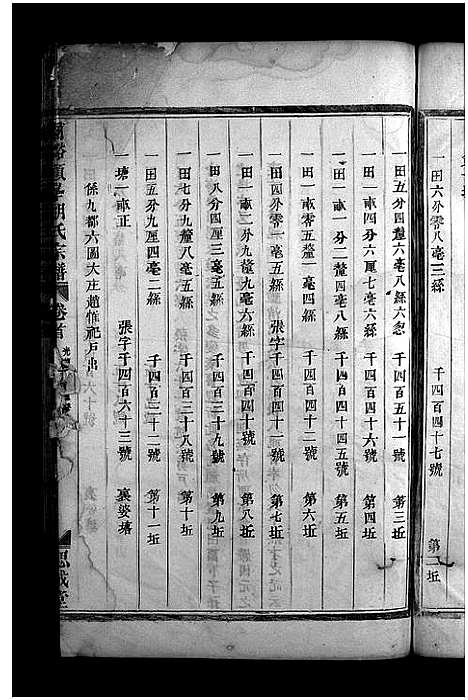 一田六分零八毫三絲 千四百四十七號 第二坵
一田五分四釐六毫八絲六忽 千四百五十一號 第三坵
一田一畝四分六厘七毫六絲 千四百四十六號 第四坵
一田一畝一分二釐四毫八絲 千四百四十五號 第五坵
一田一畝零五釐一毫四絲 千四百四十四號 第六坵
一田四分零一毫五絲 張字千四百四十一號 第七坵
一田一畝二分九釐九毫六絲 千四百四十號 第八坵
一田八分四厘三毫五絲 千四百三十九號 第九坵
一田七分九釐八毫五絲 千四百三十八號 第十坵
一田五分九厘四毫二絲 千四百三十二號 第十一坵
一塘一畝正 張字千四百六十三號 裏婆塘
係九都六圖大庄趙惟祀戶出
胡氏宗譜 卷首 思成堂